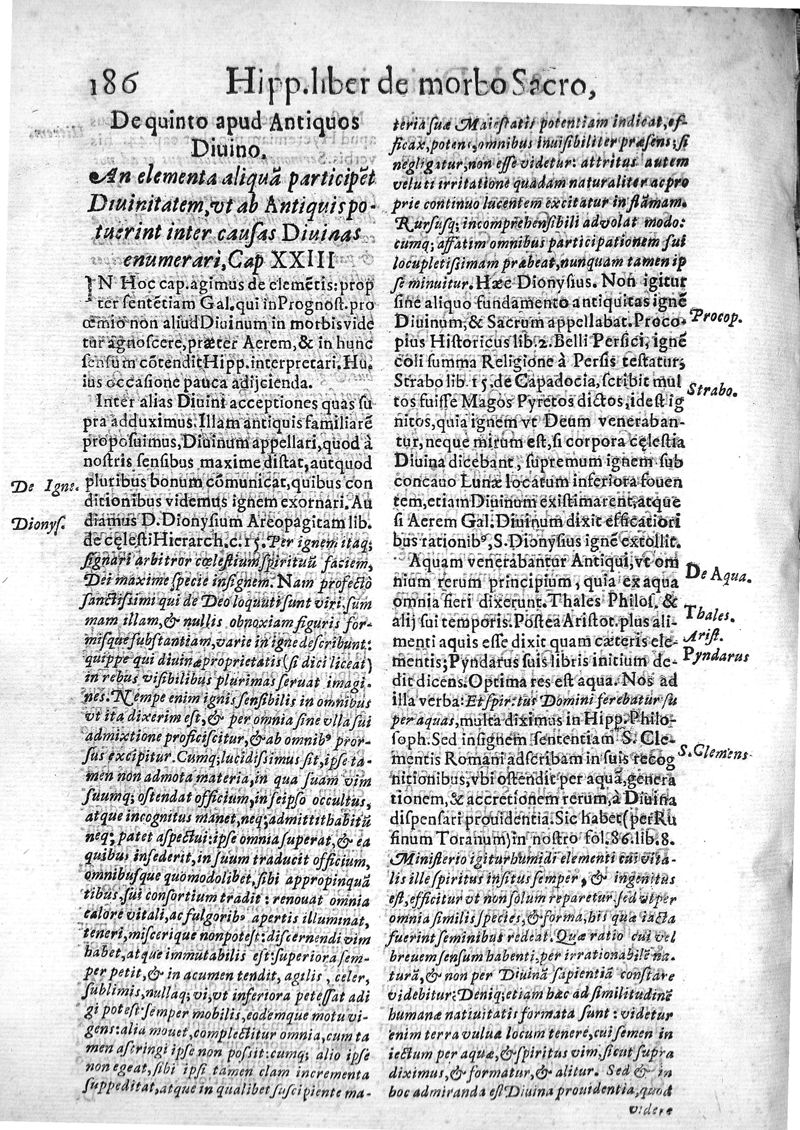 186 Hipp.liber de morbo Sacro,
De quinto apud Antiquos
Diuino.
An elementa aliquã participẽt
Diuinitatem, vt ab Antiquis po-
tuerint inter causas Diuinas
enumerari, Cap XXIII
IN Hoc cap. agimus de elemẽtis: prop
ter sentẽtiam Gal. qui in Prognost. pro
œmio non aliud Diuinum in morbis vide
tur agnoscere, præter Aerem, & in hunc
sensum cõtendit Hipp. interpretari. Hu-
ius occasione pauca adijcienda.
Inter alias Diuini acceptiones quas su
pra adduximus. Illam antiquis familiarẽ
proposuimus, Diuinum appellari, quod à
nostris sensibus maxime distat, aut quod
De Igne. pluribus bonum cõmunicat, quibus con
ditionibus videmus ignem exornari. Au
Dionys. diamus D. Dionysium Areopagitam lib.
de cęlesti Hierarch. c. 15. Per ignem itaq;
signari arbitror cœlestium spirituũ faciem,
Dei maxime specie insignem. Nam profecto
sanctissimi qui de Deo loquuti sunt viri, sum
mam illam, & nullis obnoxiam figuris for-
misque substantiam, varie in igne describunt:
quippe qui diuinæ proprietatis (si dici liceat)
in rebus visibilibus plurimas seruat imagi-
nes. Nempe enim ignis sensibilis in omnibus
vt ita dixerim est, & per omnia sine vlla sui
admixtione proficiscitur, & ab omnibꝰ pror-
sus excipitur. Cumq; lucidissimus sit, ipse ta-
men non admota materia, in qua suam vim
suumq; ostendat officium, in seipso occultus,
atque incognitus manet, neq; admittit habitũ
neq; patet aspectui: ipse omnia superat, & ea
quibus insederit, in suum traducit officium,
omnibusque quomodolibet, sibi appropinquã
tibus, sui consortium tradit: renouat omnia
calore vitali, ac fulgoribꝰ apertis illuminat,
teneri, miscerique non potest: discernendi vim
habet, atque immutabilis est: superiora sem-
per petit, & in acumen tendit, agilis, celer,
sublimis, nullaq; vi, vt inferiora petessat adi
gi potest: semper mobilis, eodemque motu vi-
gens: alia mouet, complectitur omnia, cum ta
men astringi ipse non possit: cumq; alio ipse
non egeat, sibi ipsi tamen clam incrementa
suppeditat, atque in qualibet suscipiente ma-
teria suæ Maiestatis potentiam indicat, ef-
ficax, potens, omnibus inuisibiliter præsens; si
negligatur, non esse videtur: attritus autem
veluti irritatione quadam naturaliter ac pro
prie continuo lucentem excitatur in flãmam.
Rursusq; incomprehensibili aduolat modo:
cumq; affatim omnibus participationem sui
locupletissimam præbeat, nunquam tamen ip
se minuitur. Hæc Dionysius. Non igitur
sine aliquo fundamento antiquitas ignẽ
Diuinum, & Sacrum appellabat. Proco- Procop.
pius Historicus lib. 2. Belli Persici, ignẽ
coli summa Religione à Persis testatur;
Strabo lib. 15. de Capadocia, scribit mul Strabo.
tos fuisse Magos Pyretos dictos, idest ig
nitos, quia ignem vt Deum veneraban-
tur, neque mirum est, si corpora cęlestia
Diuina dicebant, supremum ignem sub
concauo Lunæ locatum inferiora fouen
tem, etiam Diuinum existimarent, atque
si Aerem Gal. Diuinum dixit efficatiori
bus rationibꝰ, S. Dionysius ignẽ extollit.
Aquam venerabantur Antiqui, vt om De Aqua.
nium rerum principium, quia ex aqua
omnia fieri dixerunt. Thales Philos. & Thales.
alij sui temporis. Postea Aristot. plus ali- Arist.
menti aquis esse dixit quam cæteris ele-
mentis; Pyndarus suis libris initium de- Pyndarus
dit dicens. Optima res est aqua. Nos ad
illa verba: Et spiritus Domini ferebatur su
per aquas, multa diximus in Hipp. Philo-
soph. Sed insignem sententiam S. Cle- S. Clemens
mentis Romani adscribam in suis recog
nitionibus, vbi ostendit per aquã, genera
tionem, & accretionem rerum, à Diuina
dispensari prouidentia. Sic habet (per Ru
finum Toranum) in nostro fol. 86. lib. 8.
Ministerio igitur humidi elementi cui vita-
lis ille spiritus insitus semper, & ingenitus
est, efficitur vt non solum reparetur, sed vt per
omnia similis species, & forma, his quæ iacta
fuerint seminibus redeat. Quæ ratio cui vel
breuem sensum habenti, per irrationabilẽ na-
turã, & non per Diuinã sapientiã constare
videbitur: Deniq; etiam hæc ad similitudinẽ
humanæ natiuitatis formata sunt: videtur
enim terra vuluæ locum tenere, cui semen in
iectum per aquæ, & spiritus vim, sicut supra
diximus, & formatur, & alitur. Sed & in
hoc admiranda est Diuina prouidentia, quod
videre